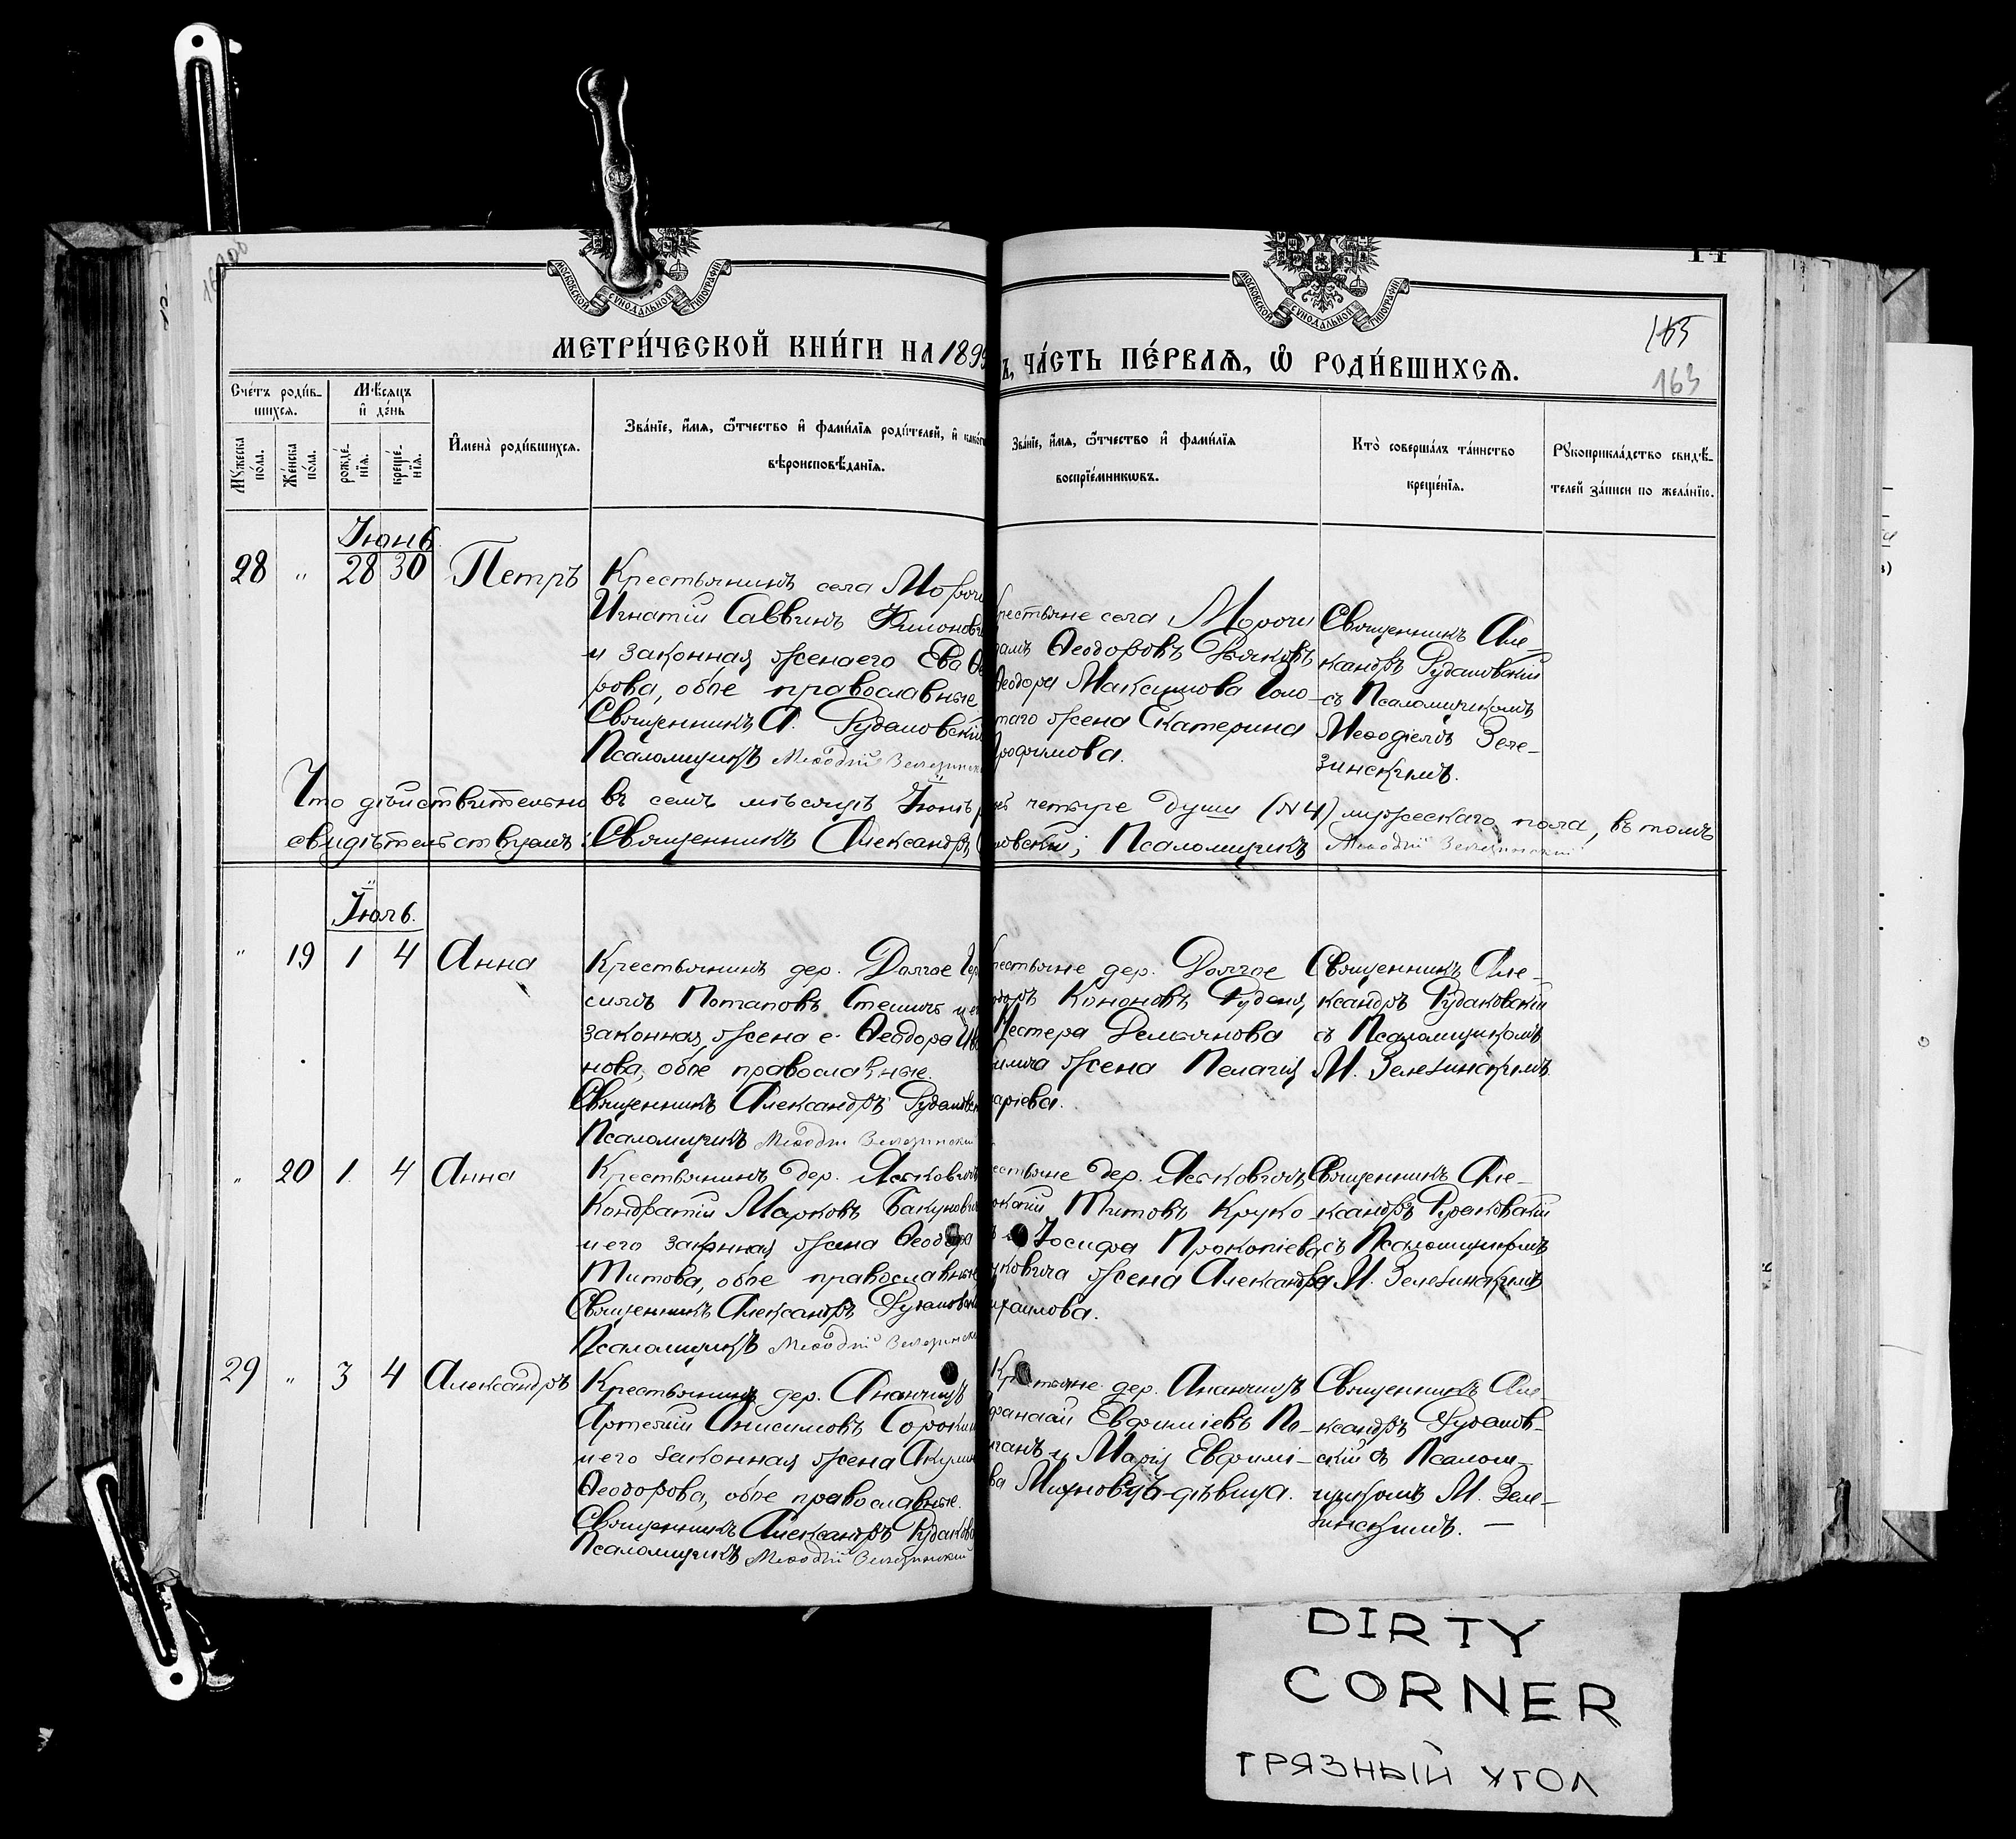 МОСКОВСКОЙ СѴНОДАЛЬНОЙ ТИПОГРАФІИ
МОСКОВСКОЙ СѴНОДАЛЬНОЙ ТИПОГРАФІИ
165
163
МЕТРИ́ЧЕСКОЙ КНИ́ГИ НА 1899
Ъ, ЧА́СТЬ ПЕ́РВАЯ, Ѡ РОДИ́ВШИХСЯ.
Сче́тъ роди́в-
шихся.
Мѣ́сяцъ
и҆ де́нь
Мꙋ́жеска по́ла.
Же́нска по́ла.
рожде́-
нїя.
креще́-
нїя.
И҆мена̀ роди́вшихся.
Зва́нїе, и҆́мя, ѻ҆́тчество и҆ фами́лїя роди́телей, и҆ како́гѡ
вѣроисповѣ́данїя.
Зва́нїе, и҆́мя, ѻ҆́тчество и҆ фами́лїя
воспрїе́мникѡвъ.
Кто̀ соверша́лъ та́инство
креще́нїя.
Рꙋкоприкла́дство свидѣ́-
телей за́писи по жела́нїю.
Іюнь
28 " 28 30 Петръ
Крестьянинъ села Мороч
Игнатій Саввинъ
и законная жена его Ева Ѳе
рова, обое православные
Священникъ А. Рудаковскій
Псаломщикъ Меѳодій Зелезинск
рестьяне села Морочи
дамъ Ѳеодоровъ Дьяковъ
Ѳеодора Максимова Голо
таго жена Екатерина
рофимова.
Священникъ Але-
ксандръ Рудаковскій
съ Псаломщикомъ
Меѳодіемъ Зеле-
зинскимъ.
Что дѣйствительно въ семъ мѣсяцѣ Іюнѣ четыре души (№ 4) мужескаго пола, въ томъ
свидѣтельствуемъ: Священникъ Александръ овскій; Псаломщикъ Меѳодій Зелезинскій
Іюль.
" 19 1 4 Анна
Крестьянинъ дер. Долгое
симъ Потаповъ и его
законная жена е. Ѳеодора Ива
нова, обое православные.
Священникъ Александръ Рудаковск
Псаломщикъ Меѳодій Зелезинскій
рестьяне дер. Долгое
Кононовъ Руденя,
Нестера Демьянова
жена Пелагія
аріева.
Священникъ Але-
ксандръ Рудаковскій
съ Псаломщикомъ
М. Зелезинскимъ
" 20 1 4 Анна
Крестьянинъ дер. Ясковичъ
Кондратій Марковъ Бакунович
и его законная жена Ѳеодора
Титова, обое православные
Священникъ Александръ Рудаковск
Псаломщикъ Меѳодій Зелезинск
естьяне дер. Ясковичъ
Титовъ Круко-
Іосифа Прокопіева
ковича жена Александра
ихаилова.
Священникъ Але-
ксандръ Рудаковскій
съ Псаломщикомъ
М. Зелезинскимъ
29 " 3 4 Александръ
Крестьянинъ дер. Ананчицъ
Артемій Анисимовъ Сорокин
и его законная жена Акулин
Ѳеодорова, обое православные.
Священникъ Александръ Рудаковс
Псаломщикъ Меѳодій Зелезинскій
Крестьяне дер. Ананчицъ
фанасій Евфиміевъ По-
ганъ и Марія Евфимі-
ва Михновецъ-дѣвица.
Священникъ Але-
ксандръ Рудаков-
скій съ Псалом-
щикомъ М. Зеле-
зинскимъ. —
DIRTY
CORNER
ГРЯЗНЫЙ УГОЛ